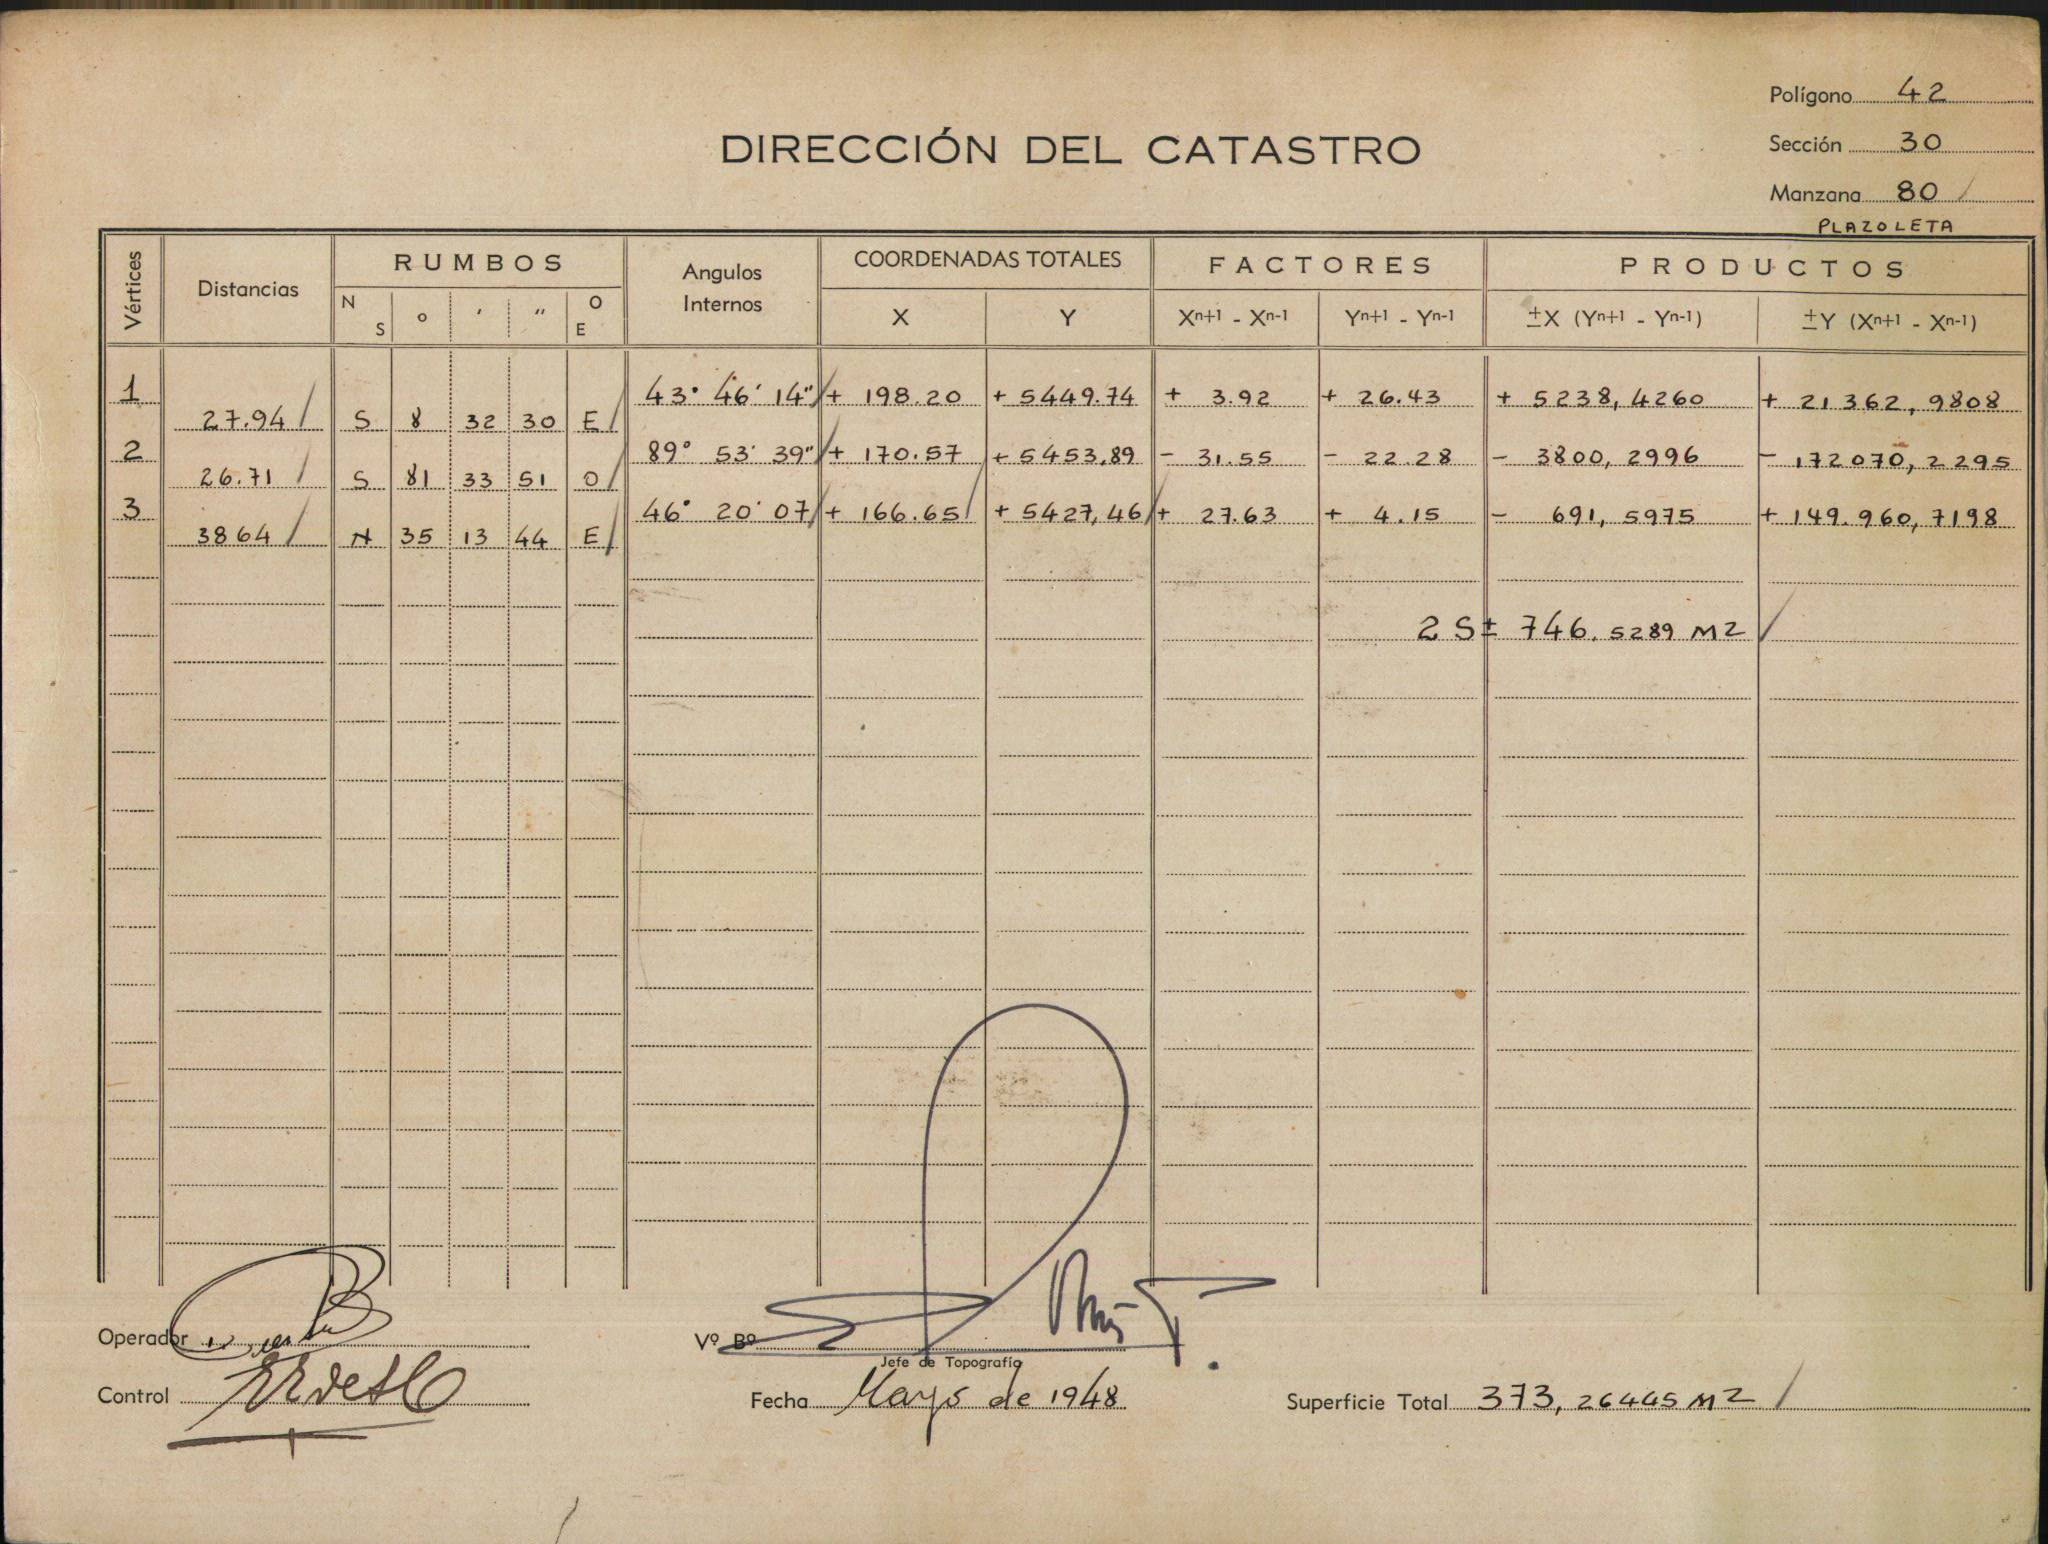 Polígono 42
DIRECCIÓN DEL CATASTRO
Sección 30
Manzana 80
PLAZOLETA
Vértices Distancias RUMBOS Angulos Internos COORDENADAS TOTALES FACTORES PRODUCTOS
N S o ′ ″ O E X Y Xn+1 - Xn-1 Yn+1 - Yn-1 ±X (Yn+1 - Yn-1) ±Y (Xn+1 - Xn-1)
1 43° 46' 14" + 198.20 + 5449.74 + 3.92 + 26.43 + 5238,4260 + 21362,9808
27.94 S 8 32 30 E
2 89° 53' 39" + 170.57 + 5453,89 - 31.55 - 22.28 - 3800,2996 - 172070,2295
26.71 S 81 33 51 O
3 46° 20' 07 + 166.65 + 5427,46 + 27.63 + 4.15 - 691,5975 + 149.960,7198
3864 N 35 13 44 E
2 S± 746.5289 M2
Operador
Vº Bº
Jefe de Topografía
Control
Fecha Mayo de 1948
Superficie Total 373,26445 M2